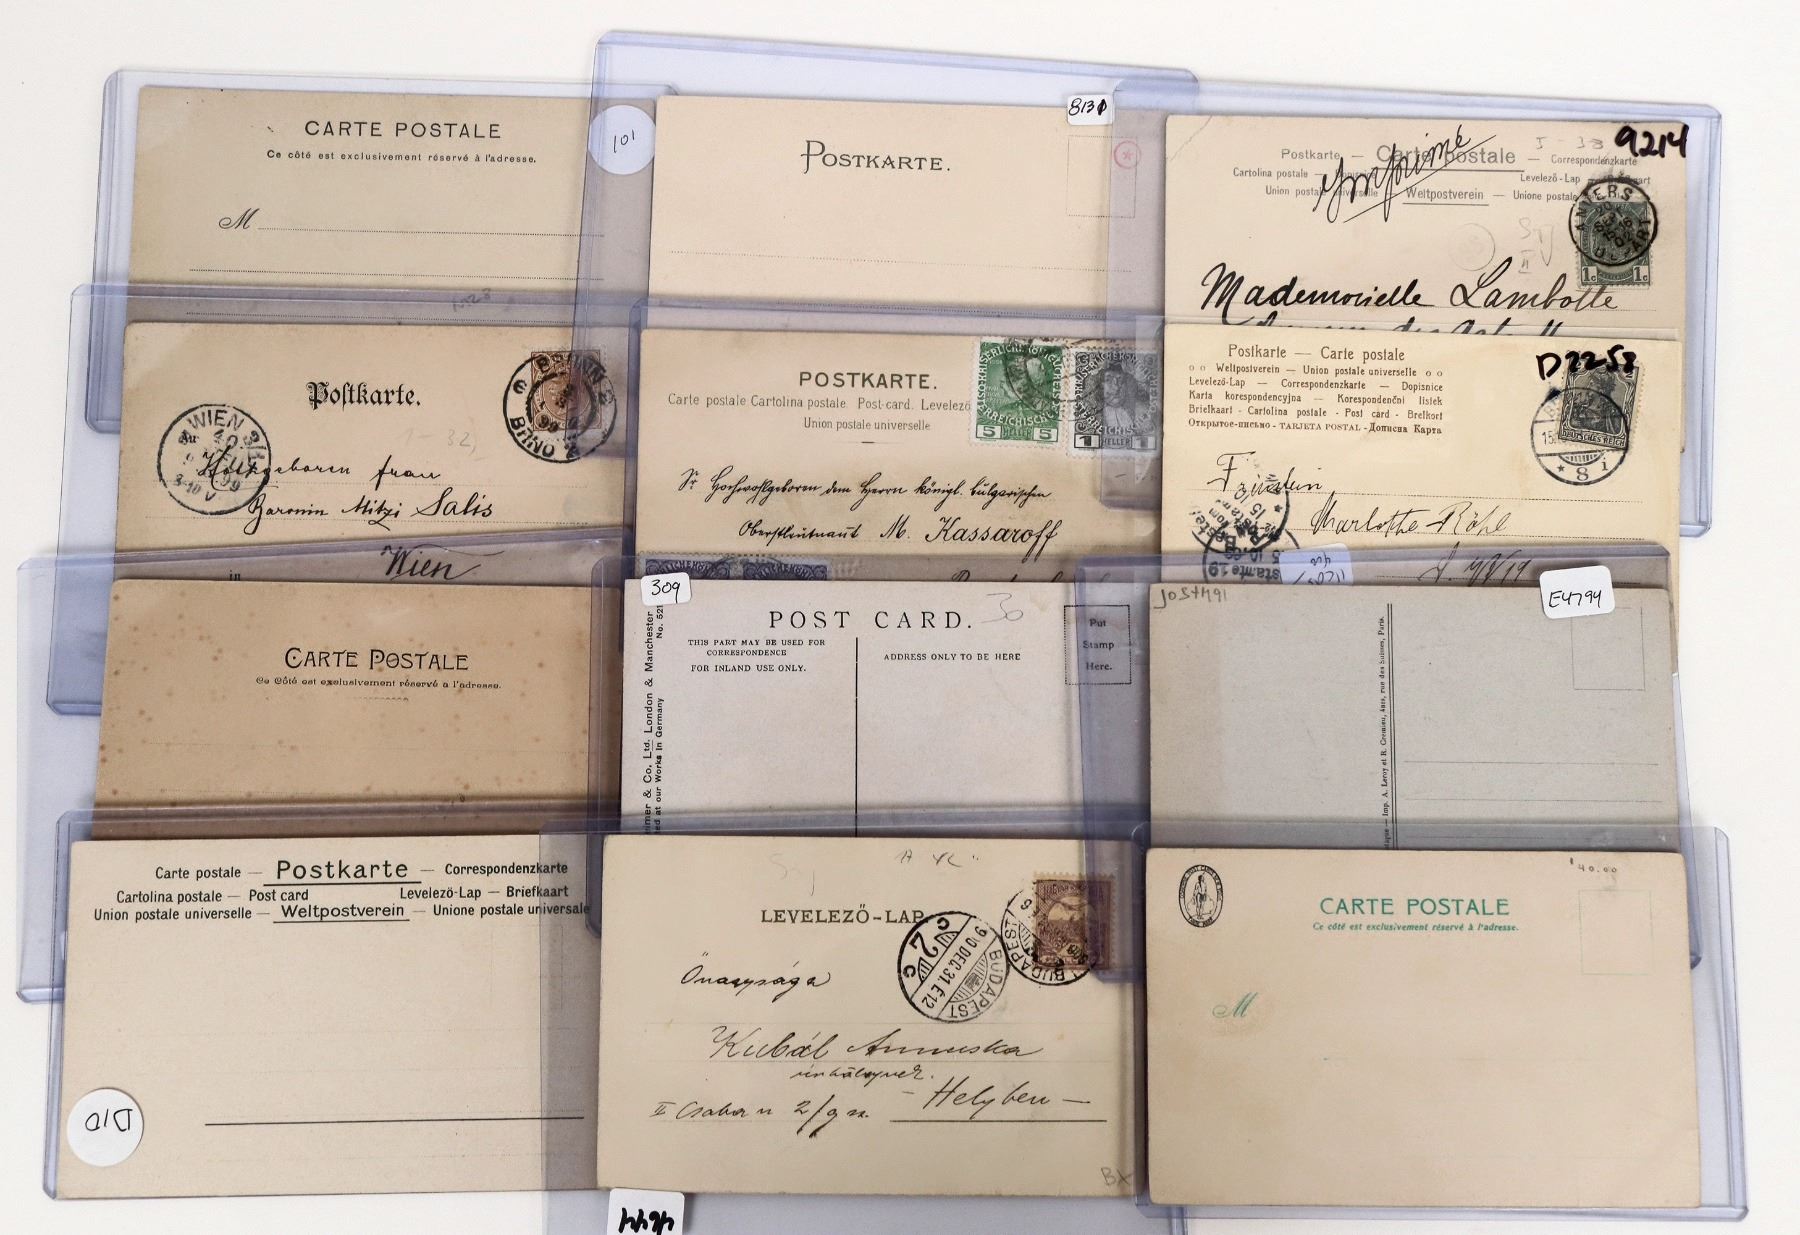 CARTE POSTALE
Ce côté est exclusivement réservé à l'adresse.
M
101
POSTKARTE.
8130
9214
Postkarte — Carte postale — Correspondenzkarte
Cartolina postale — — Levelező-Lap —
Union postale universelle Weltpostverein — Unione postale
Imprimé
ANVERS
1c 1c
Mademoiselle Lambotte
Postkarte.
BRÜNN
BRNO
99
WIEN
99
Hochgeboren frau
Baronin Mitzi Salis
in Wien
POSTKARTE.
Carte postale Cartolina postale. Post-card. Levelező
Union postale universelle
5 HELLER 5
1 HELLER 1
Sr Hochwohlgeboren dem Herrn königl. bulgarischen
Oberstleutnant M. Kassaroff
D2258
Postkarte — Carte postale
o o Weltpostverein - Union postale universelle o o
Levelező-Lap — Correspondenzkarte — Dopisnice
Karta korespondencyjna — Korespondenční lístek
Briefkaart - Cartolina postale - Post card - Brefkort
Открытое-письмо - TARJETA POSTAL - Дописна Карта
DEUTSCHES REICH
* 8 i
Fräulein
Marlothe Röhl
CARTE POSTALE
Ce Côté est exclusivement réservé a l'adresse.
309
POST CARD.
30
THIS PART MAY BE USED FOR
CORRESPONDENCE
FOR INLAND USE ONLY.
ADDRESS ONLY TO BE HERE
Put
Stamp
Here.
& Co. Ltd. London & Manchester
at our Works in Germany
E4794
Imp. A. Leroy et R. Cremieu, 4bis, rue des Suisses, Paris.
Carte postale — Postkarte — Correspondenzkarte
Cartolina postale — Post card Levelező-Lap — Briefkaart
Union postale universelle — Weltpostverein — Unione postale universale
D10
LEVELEZŐ-LAP
BUDAPEST
910 DEC. 31. É 12
BUDAPEST
Önagysága
Kubál Annuska
Helyben —
BX
4644
40.00
CARTE POSTALE
Ce côté est exclusivement réservé à l'adresse.
M